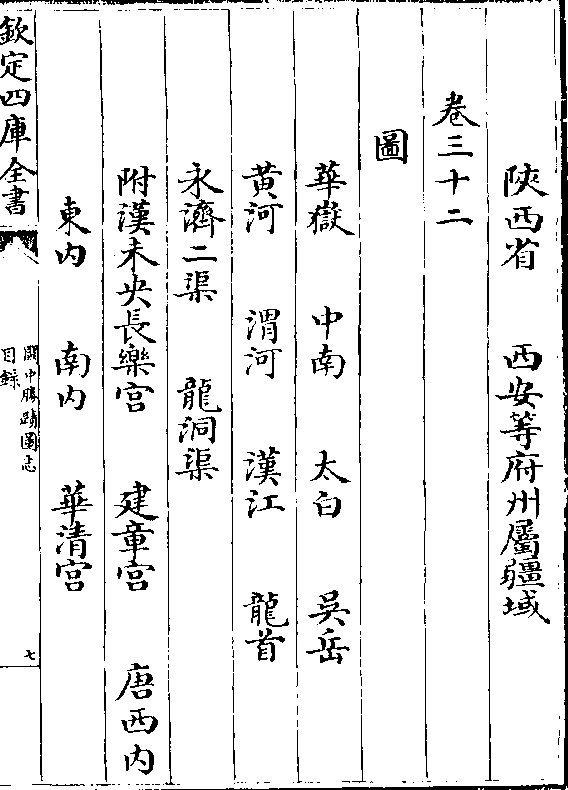 陜西省　西安等府州屬疆域
卷三十二
圖
華嶽　中南　太白　吳岳
黄河　渭河　漢江　龍首
永濟二渠　龍洞渠
附漢未央長樂宫　建章宫　唐西内
東内　南内　華清宫
欽定四庫全書
關中勝蹟圖志
目錄
七